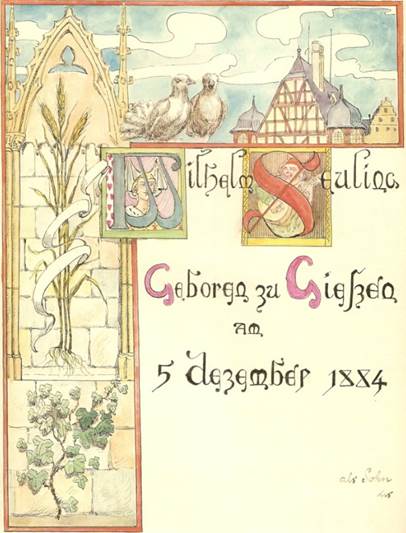 Wilhelm Seuling
Geboren zu Gießen
am
5 Dezember 1884
als Sohn